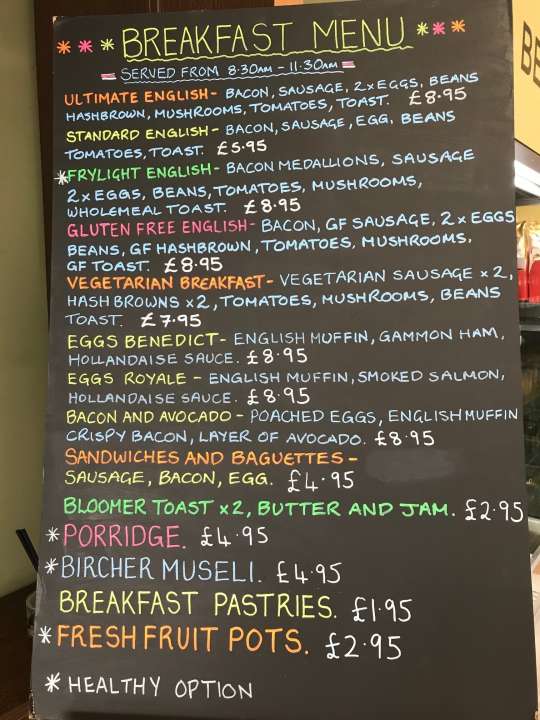 * * * BREAKFAST MENU * * *
SERVED FROM 8:30AM - 11:30AM
ULTIMATE ENGLISH - BACON, SAUSAGE, 2 x EGGS, BEANS
HASHBROWN, MUSHROOMS, TOMATOES, TOAST. £8.95
STANDARD ENGLISH - BACON, SAUSAGE, EGG, BEANS
TOMATOES, TOAST. £5.95
*FRYLIGHT ENGLISH - BACON MEDALLIONS, SAUSAGE
2 x EGGS, BEANS, TOMATOES, MUSHROOMS,
WHOLEMEAL TOAST. £8.95
GLUTEN FREE ENGLISH - BACON, GF SAUSAGE, 2 x EGGS
BEANS, GF HASHBROWN, TOMATOES, MUSHROOMS,
GF TOAST. £8.95
VEGETARIAN BREAKFAST - VEGETARIAN SAUSAGE x 2,
HASH BROWNS x 2, TOMATOES, MUSHROOMS, BEANS
TOAST. £7.95
EGGS BENEDICT - ENGLISH MUFFIN, GAMMON HAM,
HOLLANDAISE SAUCE. £8.95
EGGS ROYALE - ENGLISH MUFFIN, SMOKED SALMON,
HOLLANDAISE SAUCE. £8.95
BACON AND AVOCADO - POACHED EGGS, ENGLISH MUFFIN
CRISPY BACON, LAYER OF AVOCADO. £8.95
SANDWICHES AND BAGUETTES -
SAUSAGE, BACON, EGG. £4.95
BLOOMER TOAST x 2, BUTTER AND JAM. £2.95
*PORRIDGE. £4.95
*BIRCHER MUSELI. £4.95
BREAKFAST PASTRIES. £1.95
*FRESH FRUIT POTS. £2.95
* HEALTHY OPTION